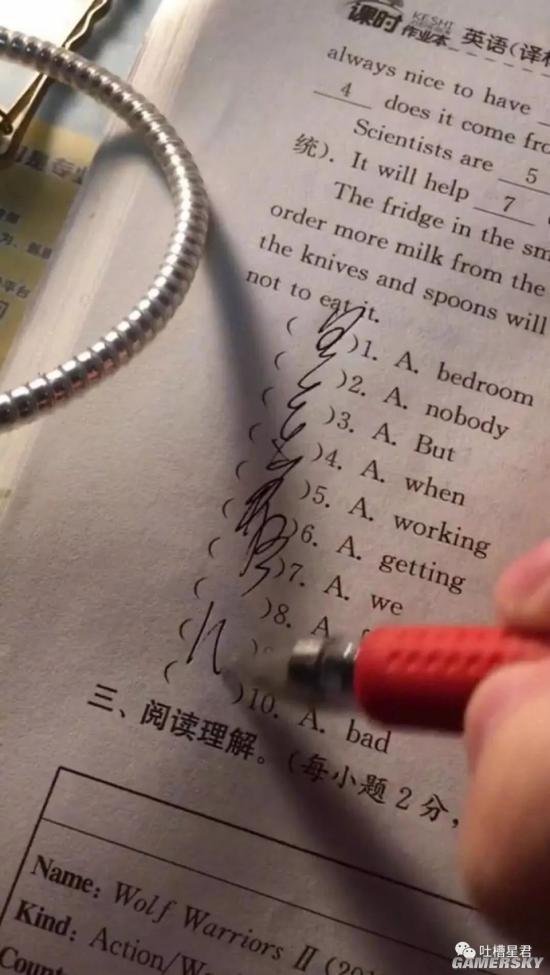 课时 KESHI 作业本 英语(译林
always nice to have
4 does it come fro
Scientists are 5
统). It will help 7
The fridge in the sm
order more milk from the
the knives and spoons will
not to eat it.
( )1. A. bedroom
( )2. A. nobody
( )3. A. But
( )4. A. when
( )5. A. working
( )6. A. getting
( )7. A. we
( )8. A.
( )10. A. bad
三、阅读理解。(每小题2分,
Name: Wolf Warriors Ⅱ (20
Kind: Action/W
Count
吐槽星君
GAMERSKY